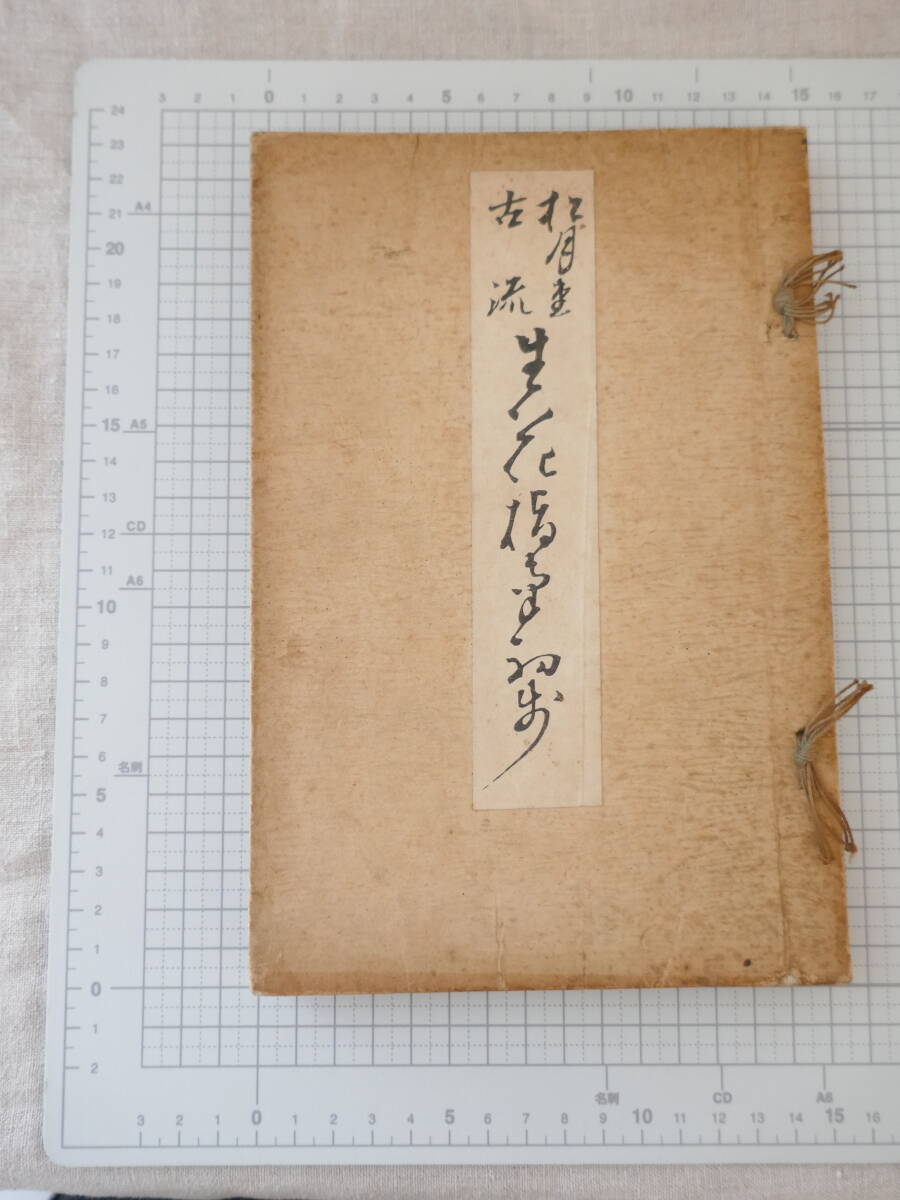 松月堂
古流
生花指導初歩
3 2 1 0 1 2 3 4 5 6 7 8 9 10 11 12 13 14 15 16 17
24
23
22
A4
21
20
19
18
17
16
15 A5
14
13
CD
12
11
A6
10
9
8
7
6
名刺
5
4
3
2
1
0
1
2
名刺 CD A6
3 2 1 0 1 2 3 4 5 6 7 8 9 10 11 12 13 14 15 16